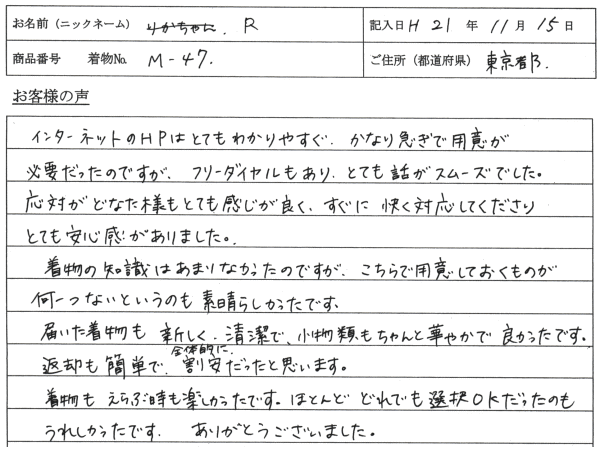 お名前（ニックネーム） りかちゃん. R 記入日 H 21 年 11 月 15 日
商品番号 着物No. M-47. ご住所（都道府県） 東京都.
お客様の声
インターネットのHPはとてもわかりやすく、かなり急ぎで用意が
必要だったのですが、フリーダイヤルもあり、とても話がスムーズでした。
応対がどなた様もとても感じが良く、すぐに快く対応してくださり
とても安心感がありました。
着物の知識はあまりなかったのですが、こちらで用意しておくものが
何一つないというのも素晴らしかったです、
届いた着物も新しく、清潔で、小物類もちゃんと華やかで良かったです。
全体的に、
返却も簡単で、割安だったと思います。
着物もえらぶ時も楽しかったです。ほとんどどれでも選択OKだったのも
うれしかったです. ありがとうございました。